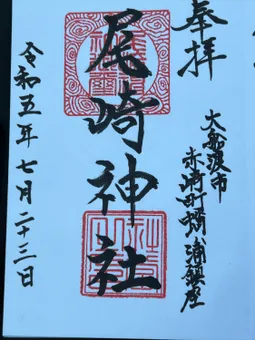 奉拝
大船渡市
赤崎町蛸ノ浦鎮座
尾崎神社
令和五年七月二十三日